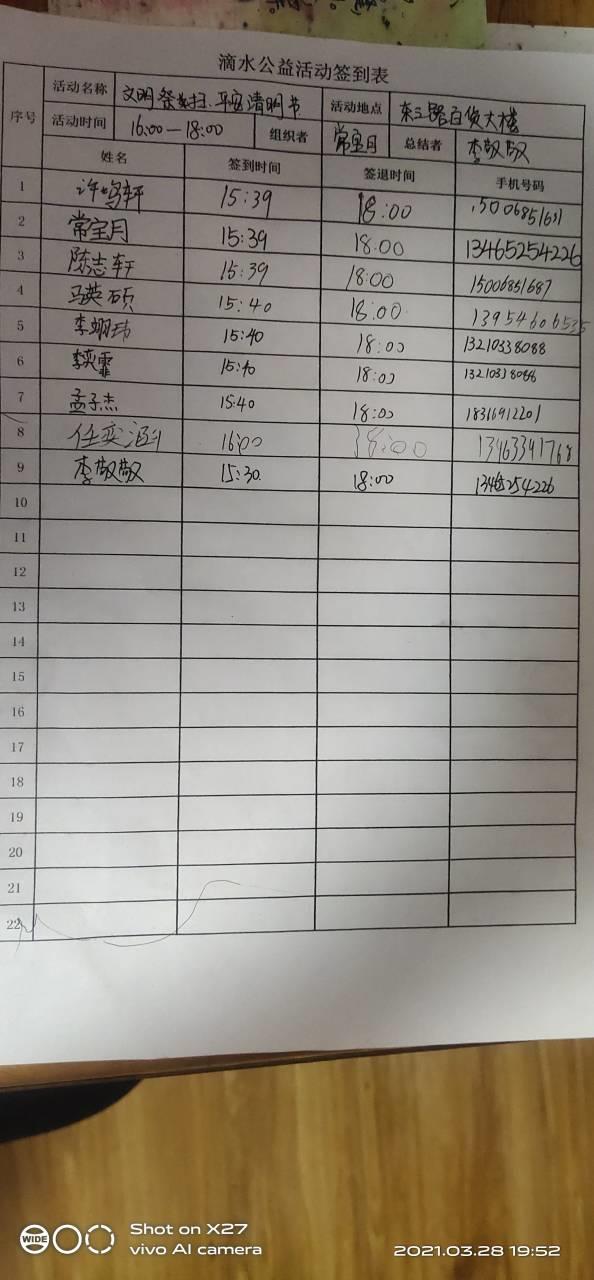 滴水公益活动签到表
序号 活动名称 文明祭扫、平安清明节 活动地点 东三路百货大楼
活动时间 16:00—18:00 组织者 常宝月 总结者 李敬敬
姓名 签到时间 签退时间 手机号码
1 许 轩 15:39 18:00
2 常宝月 15:39 18:00 13465254226
3 陈志轩 15:39 18:00 15006851687
4 马英硕 15:40 18:00 13954606535
5 李翊玮 15:40 18:00 13210338088
6 李奕霏 15:40 18:00 13210338088
7 孟子杰 15:40 18:00 18316912201
8 任奕涵 16:00 18:00 13963341768
9 李敬敬 15:30 18:00 13465254226
10
11
12
13
14
15
16
17
18
19
20
21
22
WIDE Shot on X27
vivo AI camera 2021.03.28 19:52